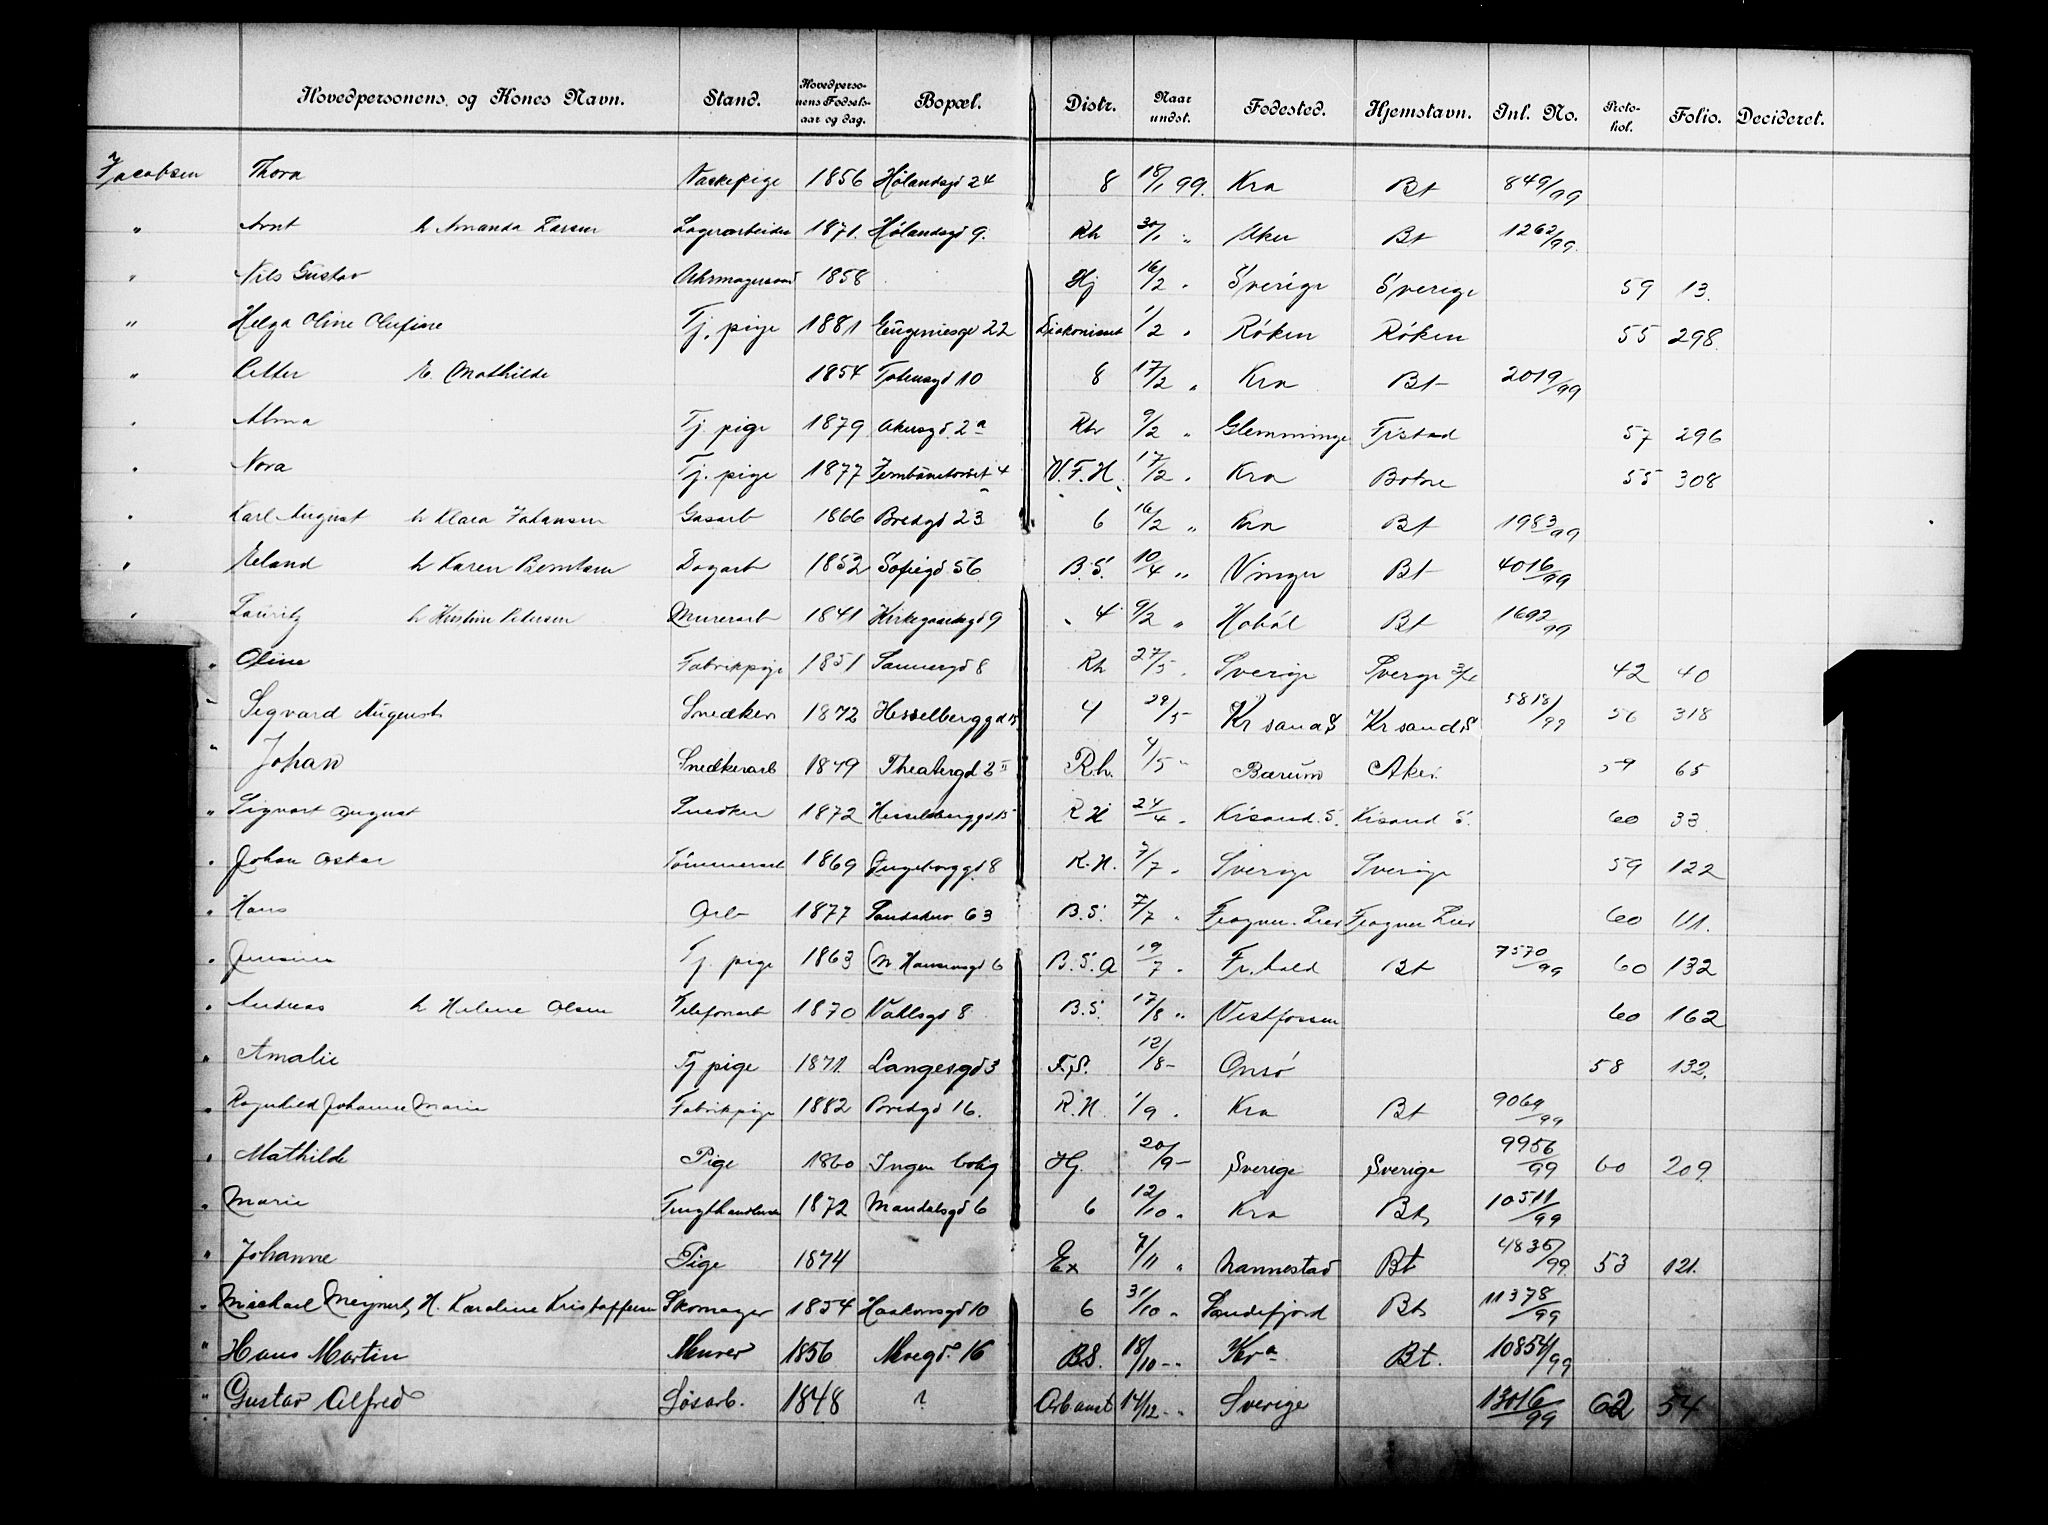 Hovedpersonens og Kones Navn. Stand. Hovedpersonens Fødselsaar og dag. Bopæl. Distr. Naar undst. Fødested. Hjemstavn. Inl. No. Protokol. Folio. Decideret.
Jacobsen Thora Vaskepige 1856 Hølandsgd 24 8 18/1 99. Kra Bt 849/99
" Arnt h Amanda Larsen Lagerarbeider 1871. Hølandsgd 9. Rh 30/1 " Aker Bt 1262/99.
" Nils Gustav Uhrmagersvend 1858 Hj 16/2 " Sverige Sverige 59 13.
" Helga Oline Olufine Tj. pige 1881 Eugeniesgd 22 Diakonisseh 1/2 " Røken Røken 55 298.
" Petter E. Mathilde 1854 Totensgd 10 8 17/2 " Kra Bt 2019/99
" Alma Tj. pige 1879 Akersgd. 2a Rh 9/2 " Glemminge Fr.stad 57 296
" Nora Tj. pige 1877 Jernbanetorvet 4 V.F.H. 17/2 " Kra Botne 55 308
" Karl August h Klara Johansen Gasarb 1866 Bredgd 23 6 16/2 " Kra Bt 1983/99
" Erland h Karen Berntsen Dagarb 1852 Sofiegd 56 B.S. 10/4 " Vinger Bt 4016/99
" Lauritz h Kristine Petersen Murerarb 1841 Kirkegaardsgd 9 4 9/2 " Hobøl Bt 1692/99
" Oline Fabrikpige 1851 Sannergd 8 Rh 27/5 " Sverige Sverge 42 40
" Sigvard August Snedker 1872 Hesselberggd 15 4 29/5 Kr sand S Kr sand S 5818/99 56 318
" Johan Snedkerarb 1849 Theatergd 2 II R.h. 4/5 " Bærum Aker 59 65
" Sigvart August Snedker 1872 Hesselsberggd 15 R H 24/4 " Krsand. S. Krsand S. 60 33
" Johan Oskar Tømmerarb 1869 Ingeborggd. 8 R.H. 7/7 " Sverige Sverige 59 122
" Hans Arb 1877 Sandaker 63 B.S. 7/7 " Frogner. Lier Frogner Lier 60 111.
" Jensine Tj. pige 1863 M. Hansensgd 6 B.S.A 19/7 " Fr.hald Bt 7570/99 60 132
" Andreas h Helene Olsen Telefonarb 1870 Vahlsgd 8 B.S. 17/8 " Vestfossen 60 162
" Amalie Tj pige 1871. Langesgd 3 F.S. 12/8 - Onsø 58 132.
" Ragnhild Johanne Marie Fabrikpige 1882 Bredgd 16. R.H. 1/9 " Kra Bt 9069/99
" Mathilde Pige 1860 Ingen bolig Hj. 20/9 - Sverige Sverige 9956/99 60 209.
" Marie Frugthandlerske 1872 Mandalsgd 6 6 12/10 " Kra Bt 10511/99
" Johanne Pige 1874 Ex 7/11 " Nannestad Bt 4835/99. 53 121.
" Michael Meynert, H. Karoline Kristoffersen Skomager 1854 Haakonsgd 10 6 31/10 " Sandefjord Bt 11378/99
" Hans Martin Murer 1856 Moegd. 16 BS. 18/10 - " Kra Bt. 10854/99
" Gustav Alfred Løsarb. 1848 ? Arb anst 14/12 - " Sverige 13016/99 62 54